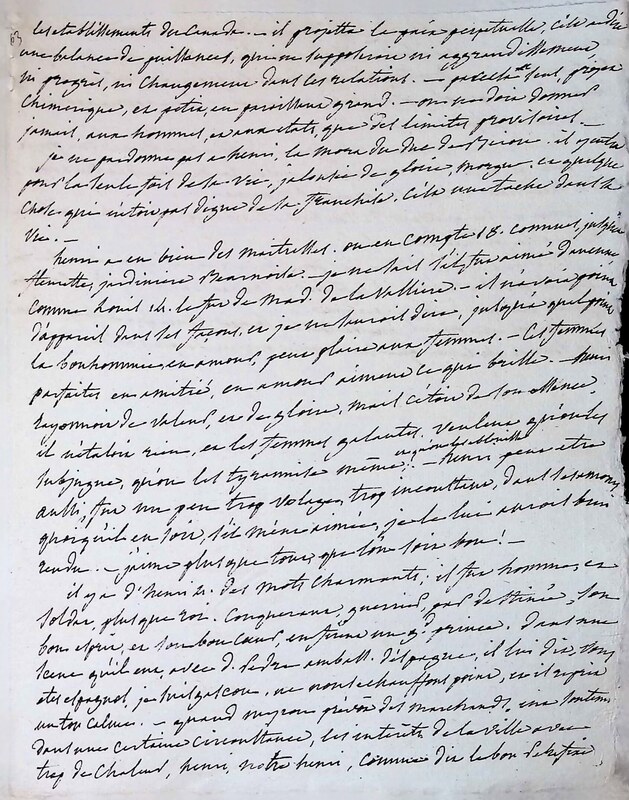 63
les etablissements du Canada. — il projetta la paix perpetuelle, c'est a dire
une balance de puissances, qui ne supposeroit ni aggrandissement
ni progrès, ni changement dans les relations. — par cela seul, projet
chimerique, et petit, en paroissant grand. — on ne doit donner
jamais, aux hommes, et aux etats, que des limites provisoires. —
je ne pardonne pas a henri, la mort du duc de Biron. il
pour la seule fois de sa vie, jalousie de gloire, morgue, et quelque
chose qui n'etoit pas digne de sa franchise. C'est une tache dans sa
vie. —
henri a eu bien des maitresses. on en compte 18. connues, jusqu'a
fleurette, jardiniere Bearnoise. — je ne sais s'il fut aimé d'aucune
comme louis 14. le fut de Mad. de la Valliere. — il n'avoit point
d'appareil dans ses façons, et je ne saurois dire, jusqu'a quel point
la bonhommie, en amour, peut plaire aux femmes. — Ces femmes
parfaites en amitié, en amour aiment ce qui brille. — henri
rayonnoit de valeur, et de gloire, mais c'étoit de son essence
il n'étaloit rien, et les femmes galantes, veulent qu'on les
subjugue, qu'on les tyrannise même, et qu'on les éblouisse. — henri peut etre
aussi, fut un peu trop volage, trop inconstant, dans ses amours,
quoiqu'il en soit, s'il m'eut aimée, je le lui aurois bien
rendu. — j'aime plus que tout, que l'on soit bon! —
il y a d'henri 4. des mots charmants; il fut homme, et
soldat, plus que roi. Conquerant, guerrier, par destinée, son
bon esprit, et son bon cœur, en firent un gd. prince. Dans une
scene qu'il eut, avec d. Pedre ambass. d'espagne, il lui dit, vous
etes espagnol, je suis gascon, ne nous echauffons point, et il reprit
un ton calme. — quand myron prévôt des marchands, eut soutenu
dans une certaine circonstance, les intérêts de la ville avec
trop de chaleur, henri, notre henri, comme dit le bon